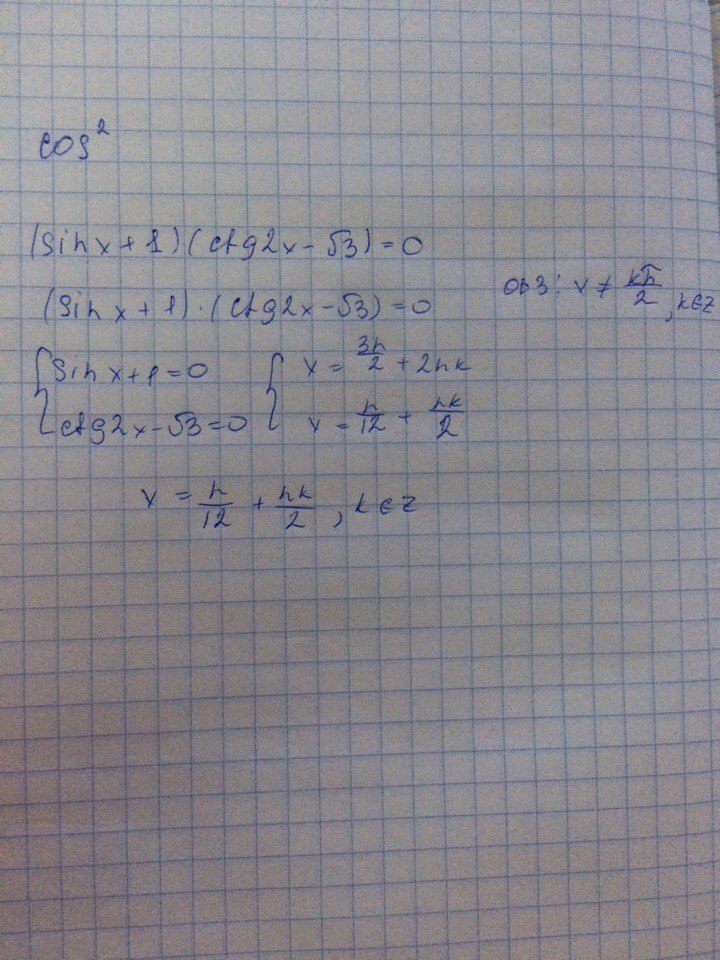 cos²
(sin x + 1)(ctg2x - √3) = 0
(sin x + 1) · (ctg2x - √3) = 0
ОДЗ: x ≠ kπ/2, k∈Z
{ sin x + 1 = 0
ctg2x - √3 = 0
{ x = 3π/2 + 2πk
x = π/12 + πk/2
x = π/12 + πk/2, k∈Z